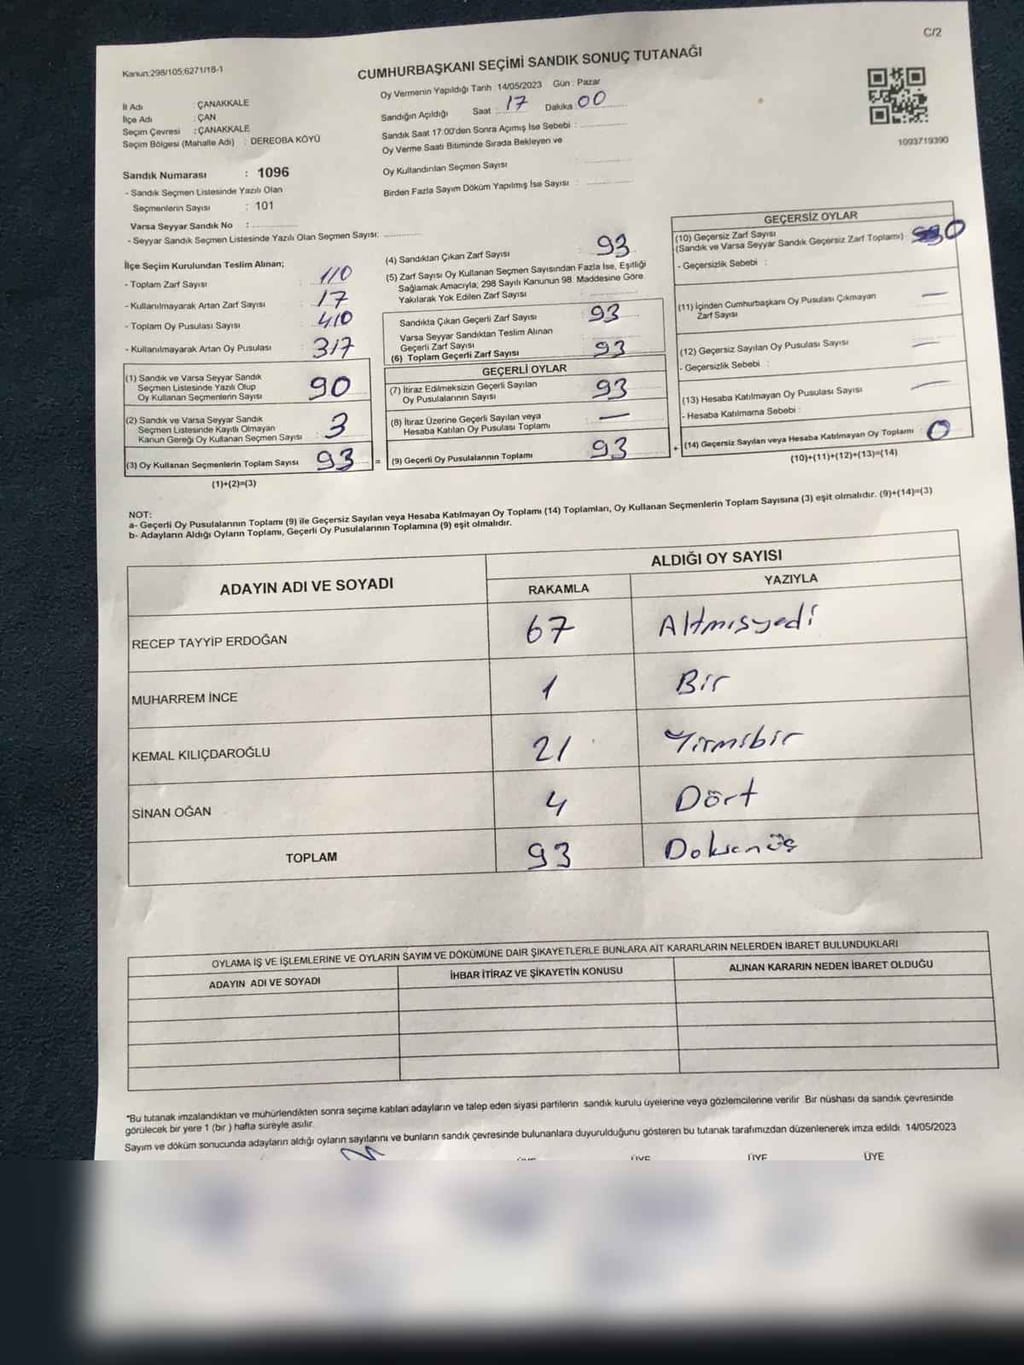 C/2
Kanun:298/105;6271/18-1
CUMHURBAŞKANI SEÇİMİ SANDIK SONUÇ TUTANAĞI
İl Adı : ÇANAKKALE
İlçe Adı : ÇAN
Seçim Çevresi : ÇANAKKALE
Seçim Bölgesi (Mahalle Adı) : DEREOBA KÖYÜ
Oy Vermenin Yapıldığı Tarih 14/05/2023 Gün : Pazar
Sandığın Açıldığı Saat : 17 Dakika 00
Sandık Saat 17:00'den Sonra Açımış İse Sebebi :
Oy Verme Saati Bitiminde Sırada Bekleyen ve
Oy Kullandırılan Seçmen Sayısı
Birden Fazla Sayım Döküm Yapılmış İse Sayısı :
1093719390
Sandık Numarası : 1096
- Sandık Seçmen Listesinde Yazılı Olan
Seçmenlerin Sayısı : 101
Varsa Seyyar Sandık No :
- Seyyar Sandık Seçmen Listesinde Yazılı Olan Seçmen Sayısı:
İlçe Seçim Kurulundan Teslim Alınan;
- Toplam Zarf Sayısı : 110
- Kullanılmayarak Artan Zarf Sayısı : 17
- Toplam Oy Pusulası Sayısı : 410
- Kullanılmayarak Artan Oy Pusulası : 317
(1) Sandık ve Varsa Seyyar Sandık
Seçmen Listesinde Yazılı Olup
Oy Kullanan Seçmenlerin Sayısı : 90
(2) Sandık ve Varsa Seyyar Sandık
Seçmen Listesinde Kayıtlı Olmayan
Kanun Gereği Oy Kullanan Seçmen Sayısı : 3
(3) Oy Kullanan Seçmenlerin Toplam Sayısı : 93
(1)+(2)=(3)
(4) Sandıktan Çıkan Zarf Sayısı : 93
(5) Zarf Sayısı Oy Kullanan Seçmen Sayısından Fazla İse, Eşitliği
Sağlamak Amacıyla; 298 Sayılı Kanunun 98. Maddesine Göre
Yakılarak Yok Edilen Zarf Sayısı
Sandıkta Çıkan Geçerli Zarf Sayısı : 93
Varsa Seyyar Sandıktan Teslim Alınan
Geçerli Zarf Sayısı
(6) Toplam Geçerli Zarf Sayısı : 93
GEÇERLİ OYLAR
(7) İtiraz Edilmeksizin Geçerli Sayılan
Oy Pusulalarının Sayısı : 93
(8) İtiraz Üzerine Geçerli Sayılan veya
Hesaba Katılan Oy Pusulası Toplamı : —
= (9) Geçerli Oy Pusulalarının Toplamı : 93
GEÇERSİZ OYLAR
(10) Geçersiz Zarf Sayısı
(Sandık ve Varsa Seyyar Sandık Geçersiz Zarf Toplamı) : 0
- Geçersizlik Sebebi :
(11) İçinden Cumhurbaşkanı Oy Pusulası Çıkmayan
Zarf Sayısı —
(12) Geçersiz Sayılan Oy Pusulası Sayısı —
- Geçersizlik Sebebi :
(13) Hesaba Katılmayan Oy Pusulası Sayısı —
- Hesaba Katılmama Sebebi :
+ (14) Geçersiz Sayılan veya Hesaba Katılmayan Oy Toplamı : 0
(10)+(11)+(12)+(13)=(14)
NOT:
a- Geçerli Oy Pusulalarının Toplamı (9) ile Geçersiz Sayılan veya Hesaba Katılmayan Oy Toplamı (14) Toplamları, Oy Kullanan Seçmenlerin Toplam Sayısına (3) eşit olmalıdır. (9)+(14)=(3)
b- Adayların Aldığı Oyların Toplamı, Geçerli Oy Pusulalarının Toplamına (9) eşit olmalıdır.
ADAYIN ADI VE SOYADI
ALDIĞI OY SAYISI
RAKAMLA YAZIYLA
RECEP TAYYİP ERDOĞAN 67 Altmışyedi
MUHARREM İNCE 1 Bir
KEMAL KILIÇDAROĞLU 21 Yirmibir
SİNAN OĞAN 4 Dört
TOPLAM 93 Doksanüç
OYLAMA İŞ VE İŞLEMLERİNE VE OYLARIN SAYIM VE DÖKÜMÜNE DAİR ŞİKAYETLERLE BUNLARA AİT KARARLARIN NELERDEN İBARET BULUNDUKLARI
ADAYIN ADI VE SOYADI İHBAR İTİRAZ VE ŞİKAYETİN KONUSU ALINAN KARARIN NEDEN İBARET OLDUĞU
*Bu tutanak imzalandıktan ve mühürlendikten sonra seçime katılan adayların ve talep eden siyasi partilerin sandık kurulu üyelerine veya gözlemcilerine verilir. Bir nüshası da sandık çevresinde
görülecek bir yere 1 (bir ) hafta süreyle asılır.
Sayım ve döküm sonucunda adayların aldığı oyların sayılarını ve bunların sandık çevresinde bulunanlara duyurulduğunu gösteren bu tutanak tarafımızdan düzenlenerek imza edildi. 14/05/2023
ÜYE ÜYE ÜYE